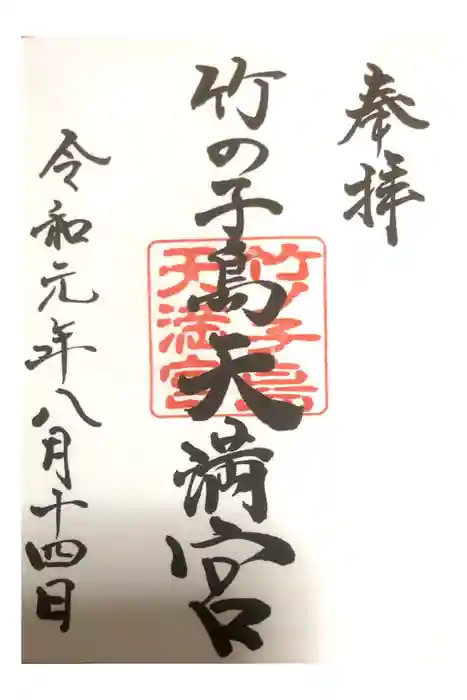 奉拝
竹の子島天満宮
竹ノ子島
天満宮
令和元年八月十四日